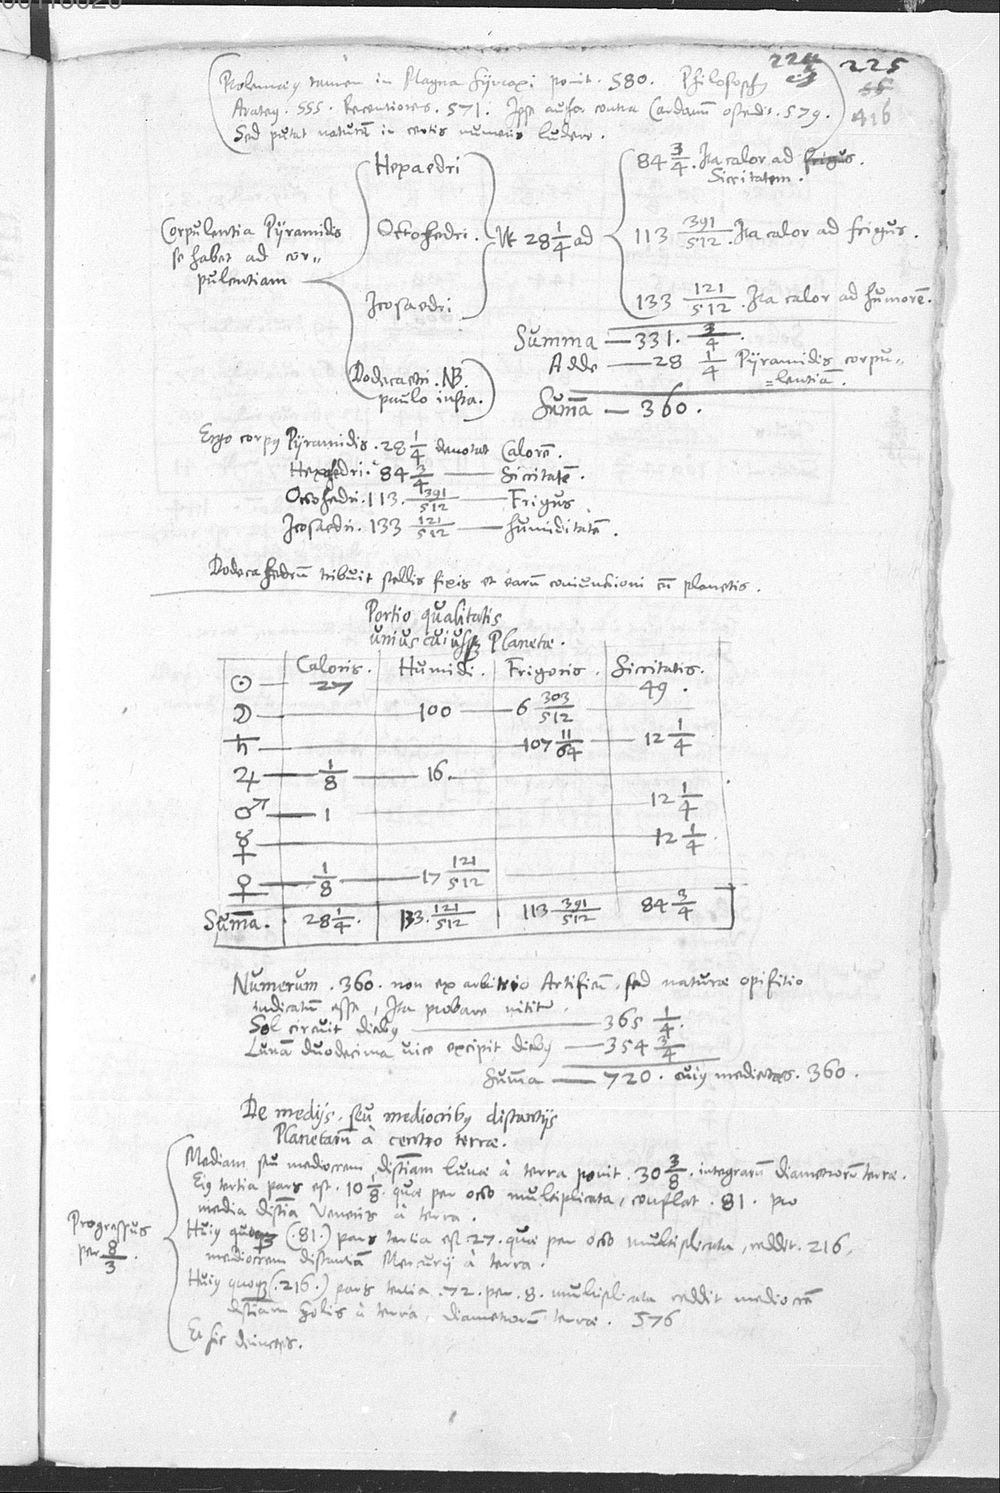 224 225
416
Ptolemaeus tamen in Magna Syntaxi ponit . 580 . Philosophus
Aratus . 555 . Recentiores . 571 . Ipse contra Cardanum ostendit . 579 .
Sed putat naturam in certis numeris ludere .
Corpulentia Pyramidis
se habet ad cor=
pulentiam
Hexaedri
Octohedri .
Icosaedri
Dodecaëdri . NB.
paulo infra .
Ut 28 1/4 ad
84 3/4 . Ita calor ad frigus .
Siccitatem .
113 391/512 . Ita calor ad frigus .
133 121/512 . Ita calor ad humorē .
Summa — 331 . 3/4 .
Adde — 28 1/4 Pyramidis corpu=
=lentiā .
Suma — 360 .
Ergo corpus Pyramidis . 28 1/4 denotat Calorē .
Hexahedri . 84 3/4 — Siccitatē .
Octohedri . 113 . 391/512 — Frigus .
Icosaedri . 133 121/512 — humiditatē .
Dodecahedrū tribuit stellis fixis et earū coniunctioni cū planetis .
Portio qualitatis
uniuscuiusque Planetae .
Caloris . Humidi . Frigoris . Siccitatis .
☉ — 27 49 .
☽ — 100 — 6 303/512
♄ — 107 11/64 — 12 1/4
♃ — 1/8 — 16 .
♂ — 1 12 1/4
☿ — 12 1/4
♀ — 1/8 — 17 121/512
Suma . 28 1/4 . 133 . 121/512 113 391/512 84 3/4
Numerum . 360 . non ex arbitrio Artificū, sed naturae opificio
indicatū esse, Ita probare nititur .
Sol circuit diebus — 365 1/4 .
Lunā duodecima vice excipit diebus — 354 3/4
Suma — 720 . cuius medietas . 360 .
De medijs, seu mediocribus distantijs
Planetarū à centro terrae .
Progressus
per 8/3 .
Mediam seu mediocrem distiam Lunae à terra ponit . 30 3/8 . integrarū diametrorū terrae .
Eius tertia pars est . 10 1/8 . quae per octo multiplicata, conflat . 81 . pro
media distia Veneris à terra .
Huius quoque ( . 81 . ) pars tertia est . 27 . quae per octo multiplicata, reddit . 216,
mediocrem distantiā Mercurij à terra .
Huius quoque ( . 216 . ) pars tertia . 72 . per . 8 . multiplicata reddit mediocrē
distiam Solis à terra, diametrorū terrae . 576
Et sic deinceps .